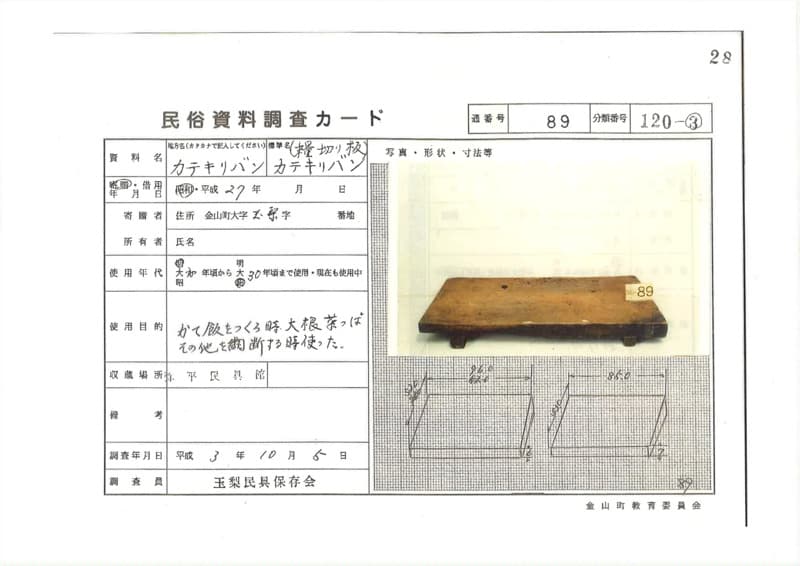 28
民俗資料調査カード
通番号 89 分類番号 120-③
資料名 地方名(カタカナで記入してください) カテキリバン 標準名 (糧切り板) カテキリバン
寄贈・借用年月日 昭和・平成 27年 月 日
寄贈者 住所 金山町大字玉梨字 番地
所有者 氏名
使用年代 明大昭 初年頃から 明大昭 30年頃まで使用・現在も使用中
使用目的 かて飯をつくる時、大根葉っぱ
その他を細断する時使った。
収蔵場所 民具館
備考
調査年月日 平成 3年 10月 5日
調査員 玉梨民具保存会
写真・形状・寸法等
89
96.0
85.0
89
金山町教育委員会